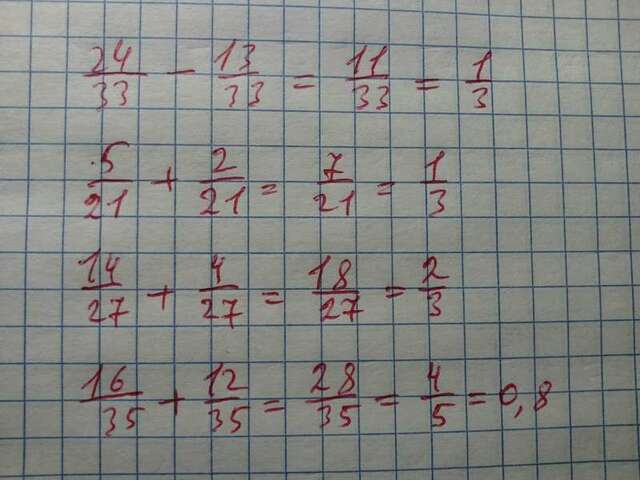 24/33 - 13/33 = 11/33 = 1/3
5/21 + 2/21 = 7/21 = 1/3
14/27 + 4/27 = 18/27 = 2/3
16/35 + 12/35 = 28/35 = 4/5 = 0,8